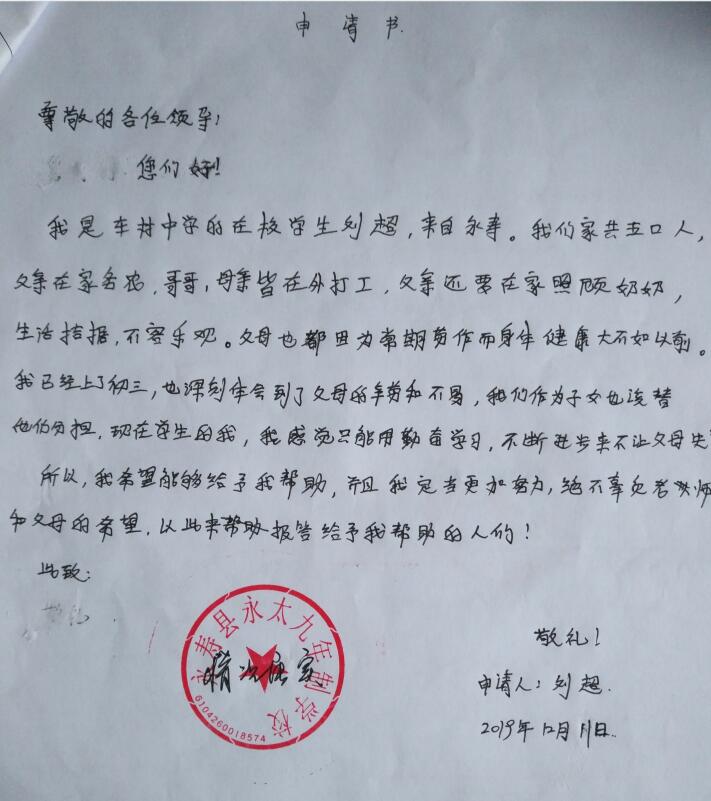 申请书.
尊敬的各位领导:
您们好!
我是车村中学的在校学生刘超,来自永寿。我们家共五口人,
父亲在家务农,哥哥,母亲皆在外打工,父亲还要在家照顾奶奶,
生活拮据,不容乐观。父母也都因为常期劳作而身体健康大不如以前。
我已经上了初三,也深刻体会到了父母的辛劳和不易,我们作为子女也该替
他们分担,现在学生的我,我感觉只能用勤奋学习,不断进步来不让父母失
所以,我希望能够给予我帮助,并且我定当更加努力,绝不辜负老师
和父母的希望,以此来帮助报答给予我帮助的人们!
此致:
敬礼!
申请人:刘超.
2019年12月11日.
永寿县永太九年制学校
情况属实
6104260018574